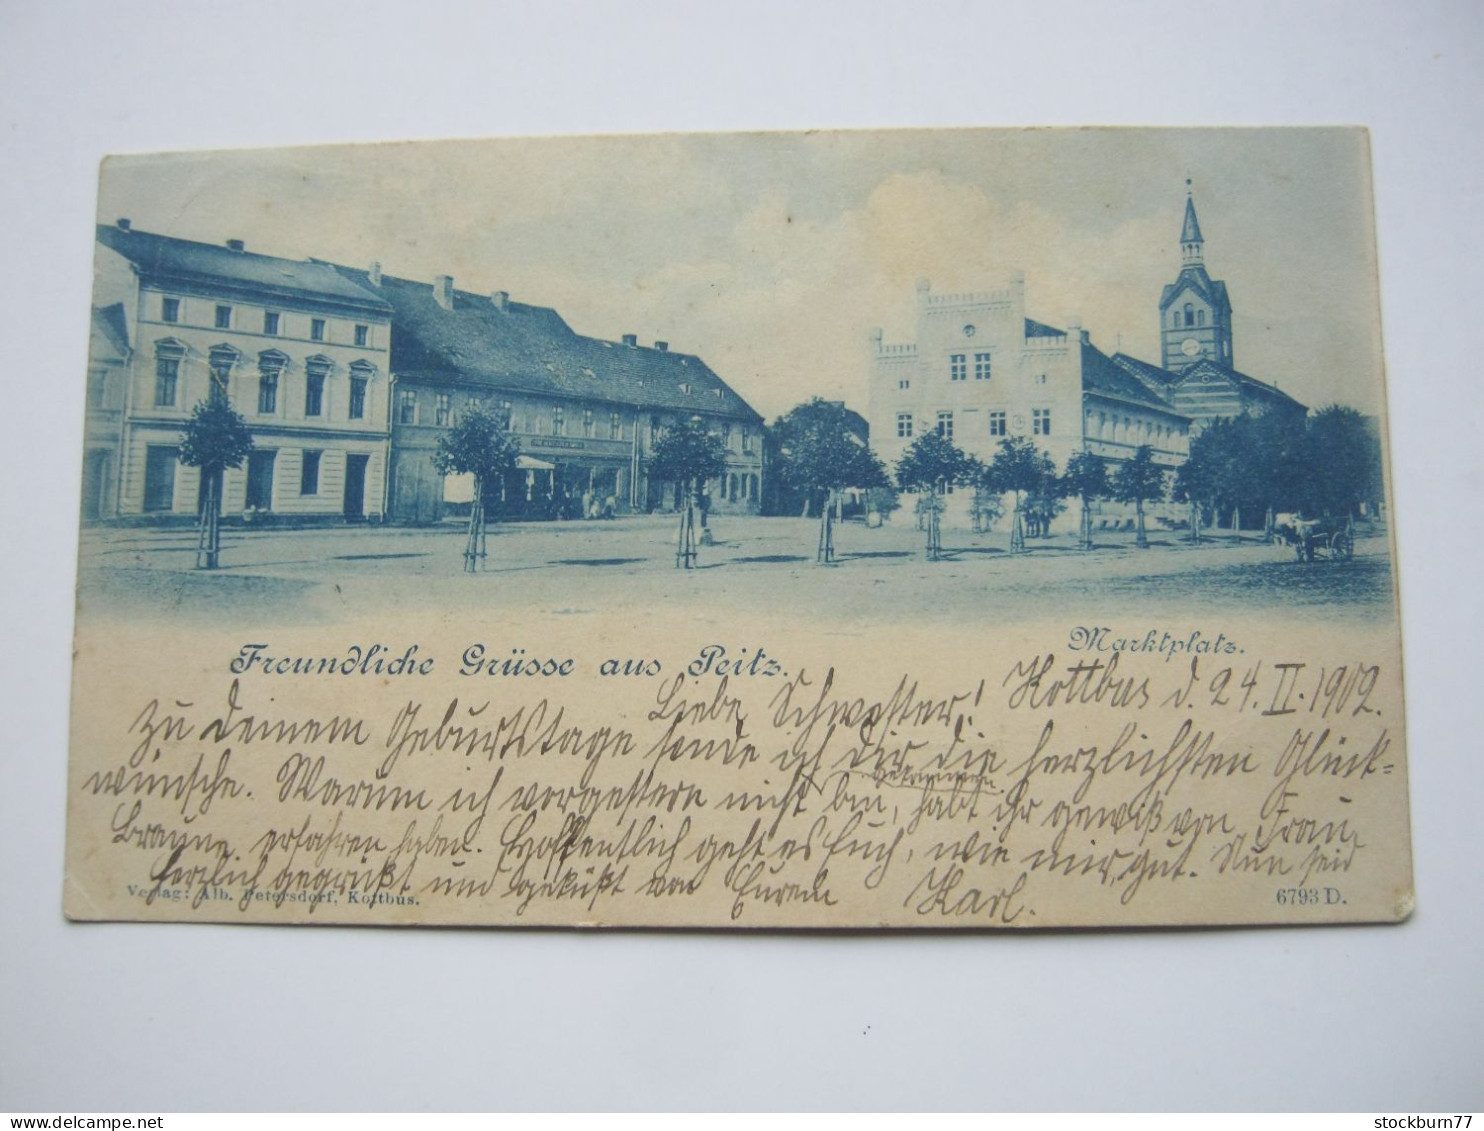 Marktplatz.
Freundliche Grüsse aus Peitz.
Kottbus d. 24. II. 1902.
Liebe Schwester!
Zu Deinem Geburtstage sende ich Dir die herzlichsten Glück-
wünsche. Warum ich vorgestern nicht gekommen bin, habt ihr gewiß von Frau
Braune erfahren haben. Hoffentlich geht es Euch, wie mir, gut. Nun seid
herzlich gegrüßt und geküßt von Eurem Karl.
Verlag: Alb. Petersdorf, Kottbus.
6793 D.
www.delcampe.net
stockburn77